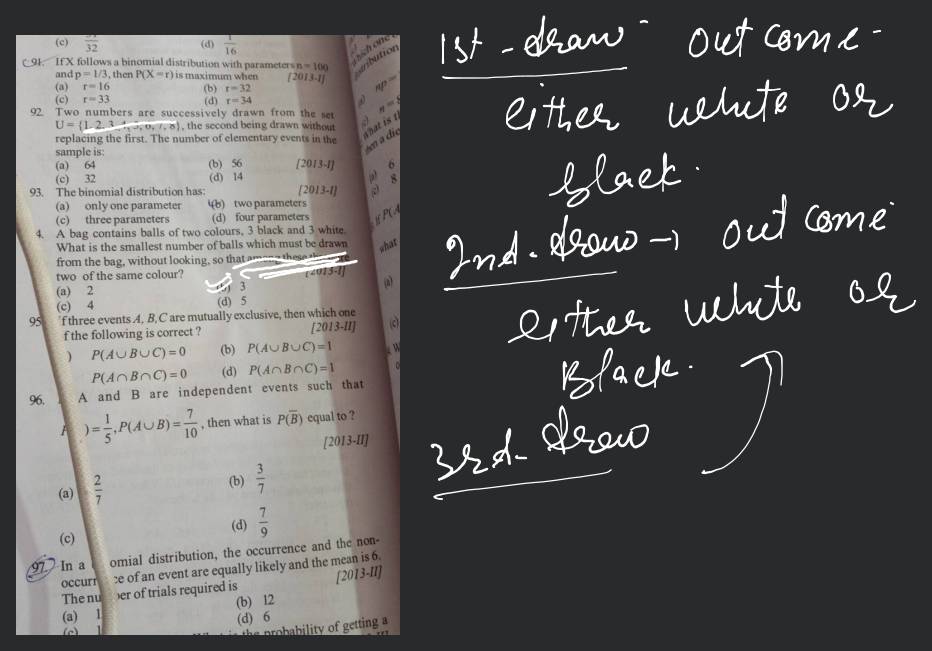 (c) 32 (d) 1/16
91. If X follows a binomial distribution with parameters n = 100
and p = 1/3, then P(X = r) is maximum when [2013-I]
(a) r = 16 (b) r = 32
(c) r = 33 (d) r = 34
92. Two numbers are successively drawn from the set
U = {1, 2, 3, 4, 5, 6, 7, 8}, the second being drawn without
replacing the first. The number of elementary events in the
sample is:
(a) 64 (b) 56 [2013-I]
(c) 32 (d) 14
93. The binomial distribution has: [2013-I]
(a) only one parameter (b) two parameters
(c) three parameters (d) four parameters
4. A bag contains balls of two colours, 3 black and 3 white.
What is the smallest number of balls which must be drawn
from the bag, without looking, so that among these
two of the same colour? [2013-I]
(a) 2 (b) 3
(c) 4 (d) 5
95 f three events A, B, C are mutually exclusive, then which one
f the following is correct ? [2013-II]
) P(A∪B∪C) = 0 (b) P(A∪B∪C) = 1
P(A∩B∩C) = 0 (d) P(A∩B∩C) = 1
96. A and B are independent events such that
) = 1/5, P(A∪B) = 7/10, then what is P(B̅) equal to ?
[2013-II]
(a) 2/7 (b) 3/7
(c) (d) 7/9
97. In a omial distribution, the occurrence and the non-
occurr ce of an event are equally likely and the mean is 6.
The nu er of trials required is [2013-II]
(a) 1 (b) 12
(c) 1 (d) 6
the probability of getting a
1st - draw out come -
either white or
black.
2nd. draw → out come
either white or
Black.
3rd- draw